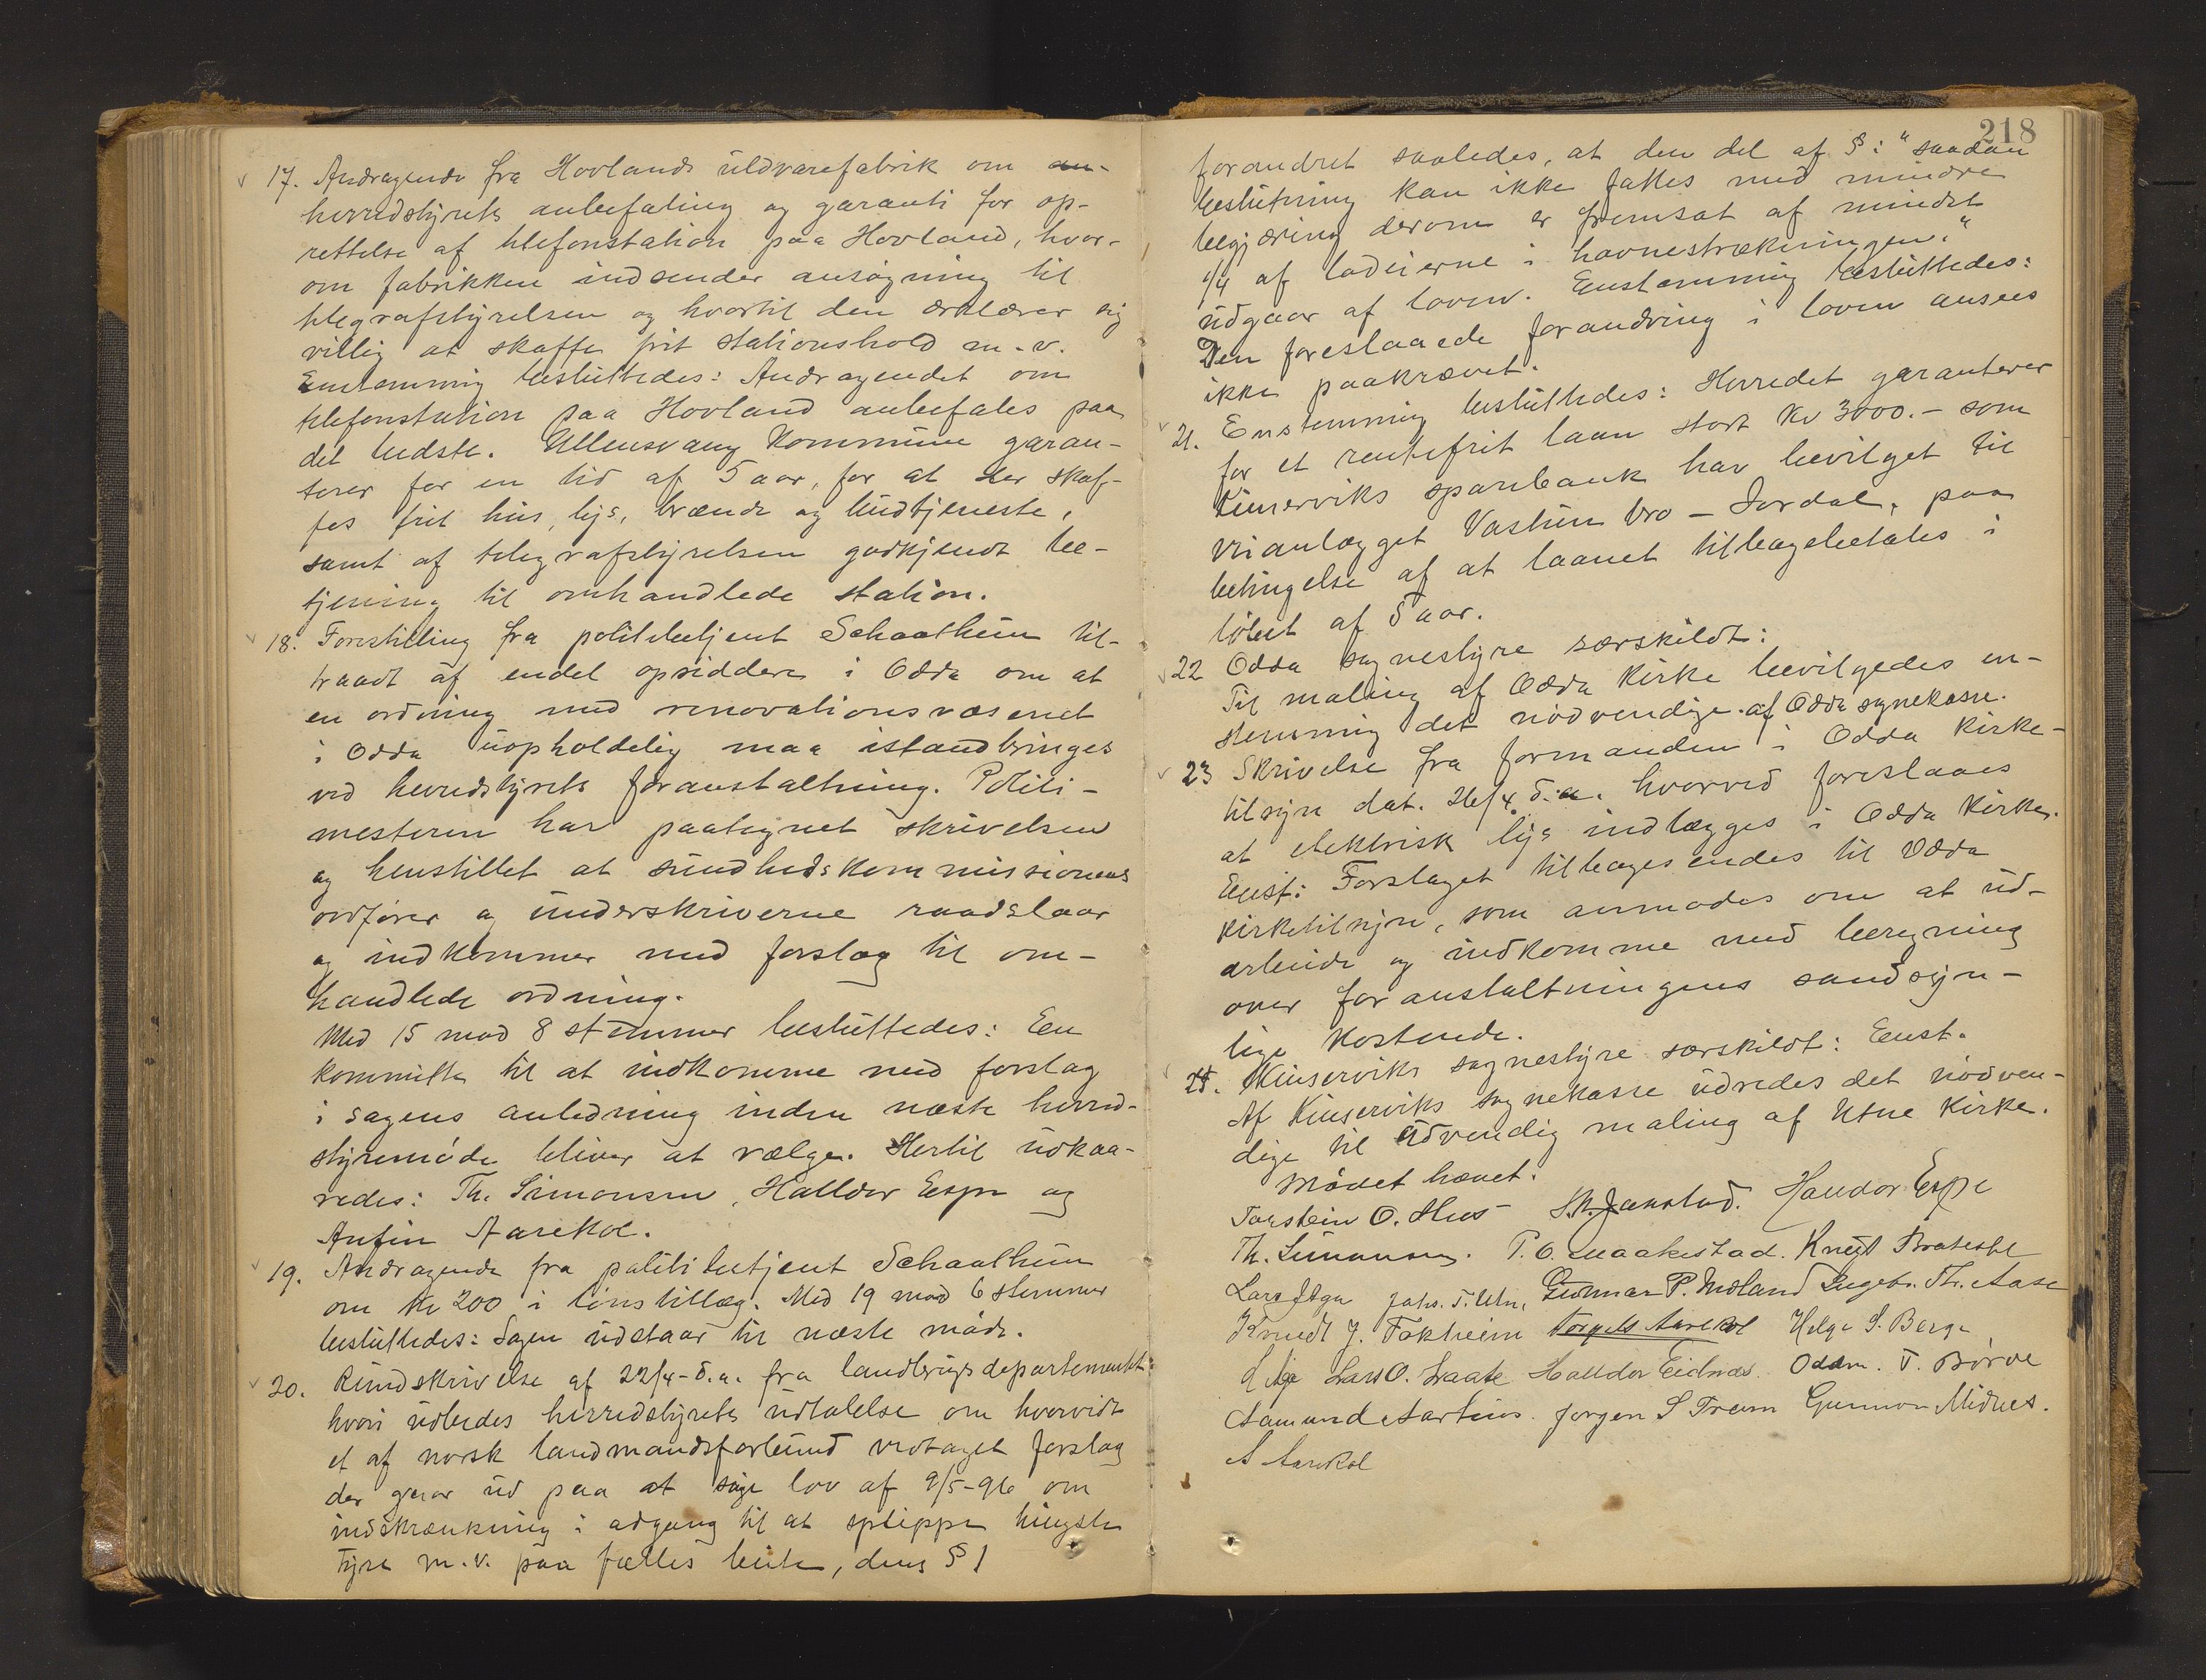 17. Andragende fra Hovlands uldvarefabrik om an-
herredstyrets anbefaling og garanti for op-
rettelse af telefonstation paa Hovland, hvor-
om fabrikken indsender ansøgning til
telegrafstyrelsen og hvortil den erklærer sig
villig at skaffe frit stationshold m.v.
Enstemmig besluttedes: Andragendet om
telefonstation paa Hovland anbefales paa
det bedste. Ullensvang kommune garan-
terer for en tid af 5 aar, for at der skaf-
fes frit hus, lys, brænde og budtjeneste,
samt af telegrafstyrelsen godkjendt be-
tjening til omhandlede station.
18. Forestilling fra politibetjent Schaathun til-
traadt af endel opsiddere i Odda om at
en ordning med renovationsvæsenet
i Odda uopholdelig maa istandbringes
ved herredstyrets foranstaltning. Politi-
mesteren har paategnet skrivelsen
og henstillet at sundhedskommissionens
ordfører og underskriverne raadslaar
og indkommer med forslag til om-
handlede ordning.
Med 15 mod 8 stemmer besluttedes: En
kommitte til at indkomme med forslag
i sagens anledning inden næste herred-
styremøde bliver at vælge. Hertil udkaa-
redes: Th. Simonsen, Halldor Espe og
Anfin Aarekol.
19. Andragende fra politibetjent Schaathun
om kr 200 i lønstillæg. Med 19 mod 6 stemmer
besluttedes: Sagen udstaar til næste møde.
20. Rundskrivelse af 22/4-d.a. fra landbrugsdepartementet:
hvori udbedes herredstyrets udtalelse om hvorvidt
et af norsk landmandsforbund vedtaget forslag
der gaar ud paa at søge lov af 9/5-96 om
indskrænkning i adgang til at slippe hingste
tyre m.v. paa fælles beite, dens § 1
218
forandret saaledes, at den del af §: "saadan
beslutning kan ikke fattes med mindre
begjæring derom er fremsat af mindst
1/4 af lodeierne i havnestrækningen."
udgaar af loven. Enstemmig besluttedes:
Den foreslaaede forandring i loven ansees
ikke paakrævet.
21. Enstemmig besluttedes: Herredet garanterer
for et rentefrit laan stort kr 3000.- som
Kinserviks sparebank har bevilget til
veianlægget Vastun bro - Jordal, paa
betingelse af at laanet tilbagebetales i
løbet af 5 aar.
22 Odda sognestyre særskildt:
Til maling af Odda kirke bevilgedes en-
stemmig det nødvendige af Odda sognekasse.
23 Skrivelse fra formanden i Odda kirke-
tilsyn dat. 26/4 d.a. hvorved foreslaaes
at elektrisk lys indlægges i Odda kirke.
Enst: Forslaget tilbagesendes til Odda
kirketilsyn, som anmodes om at ud-
arbeide og indkomme med beregning
over foranstaltningens sandsyn-
lige kostende.
24. Kinserviks sognestyre særskildt: Enst.
Af Kinserviks sognekasse udredes det nødven-
dige til udvendig maling af Utne kirke.
Mødet hævet.
Torstein O. Hus Haldor Espe
Th. Simonsen. P. O. Maakestad. Knut Bratebøl
Lars Aga Johs. T. Utne, Gunnar P. Midland Ingebr. Th. Aase
Knudt J. Tokheim Torgels Aarekol Helge S. Berge
Lars O. Kraate Halldor Eidnæs. Oddm. T. Børve
Aamund Aartun. Jørgen S Tveem Gunnar Midnes.
A Aarekol